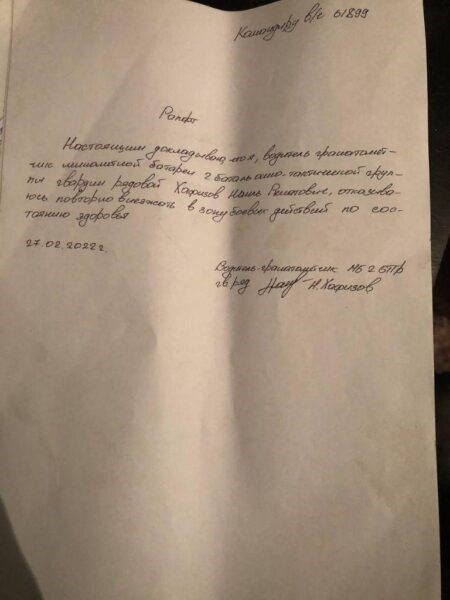 Командиру в/ч 61899
Рапорт
Настоящим докладываю, что я, водитель гранатомет-
чик минометной батареи 2 батальонно-тактической груп-
пы гвардии рядовой Хафизов Наиль Ренатович, отказыва-
юсь повторно выезжать в зону боевых действий по сос-
тоянию здоровья
27.02.2022г.
Водитель-гранатометчик МБ 2 БТГр
гв. ряд. Н. Хафизов